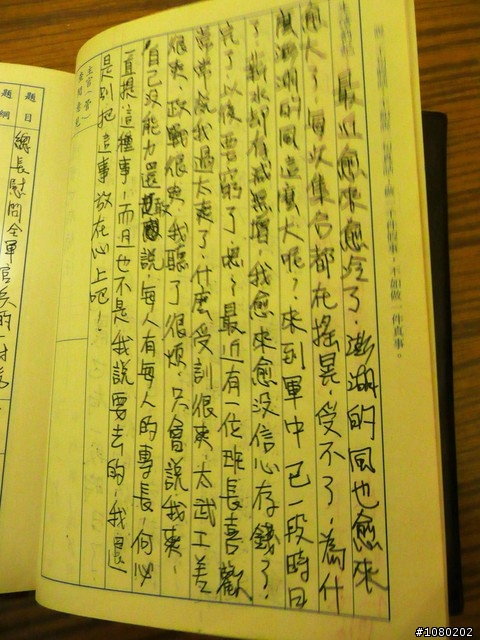 不如做一件真事。
最近愈來愈冷了，澎湖的風也愈來
愈大了，每次集合都在搖晃，受不了，為什
麼澎湖的風這麼大呢？來到軍中已一段時日
了，薪水卻有減無增，我愈來愈沒信心存錢了，
完了，以後要窮了嗎？最近有一位班長喜歡
常常說我過太爽了，什麼受訓很爽，太武工差
很爽，政戰很爽，我聽了很煩，只會說我爽，
自己沒能力還敢說，每人有每人的專長，何必
一直提這種事，而且也不是我說要去的，我還
是別把這事放在心上吧！
主官（管）
題目
題綱
總長慰問全軍官兵的一封
#1080202